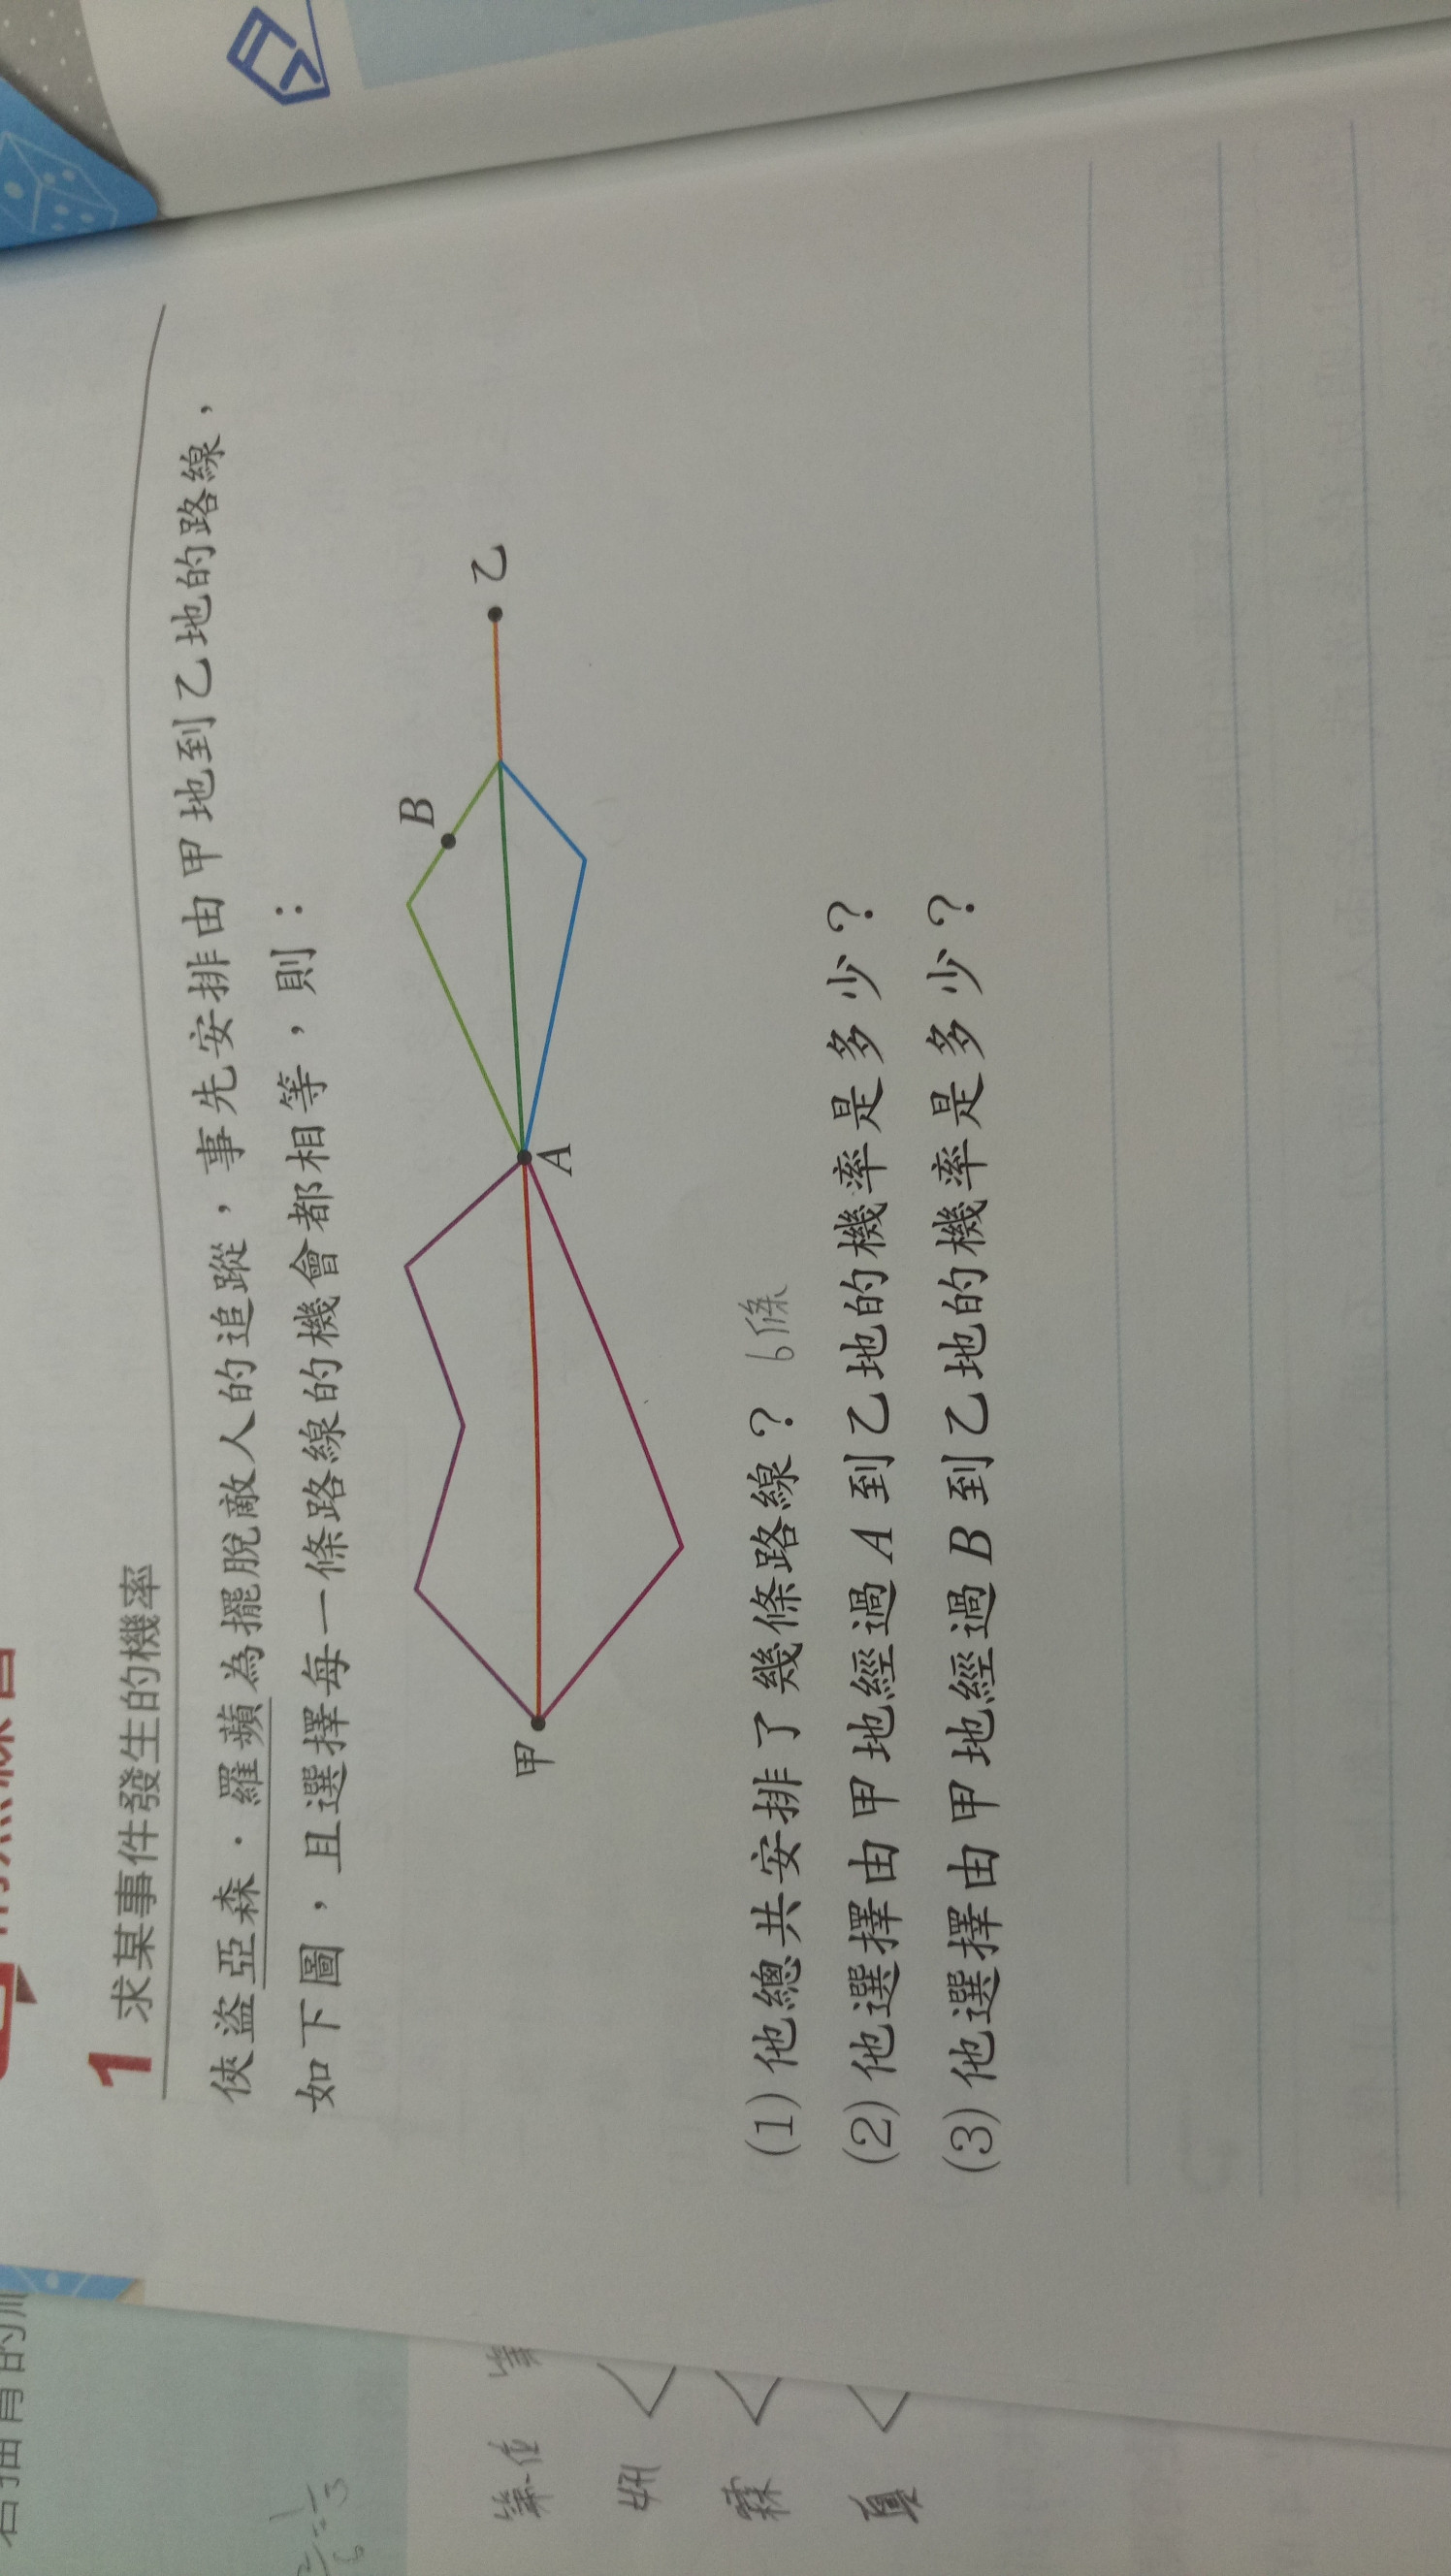 1 求某事件發生的機率
俠盜亞森．羅蘋為擺脫敵人的追蹤，事先安排由甲地到乙地的路線，
如下圖，且選擇每一條路線的機會都相等，則：
甲
A
B
乙
(1) 他總共安排了幾條路線？ 6條
(2) 他選擇由甲地經過 A 到乙地的機率是多少？
(3) 他選擇由甲地經過 B 到乙地的機率是多少？